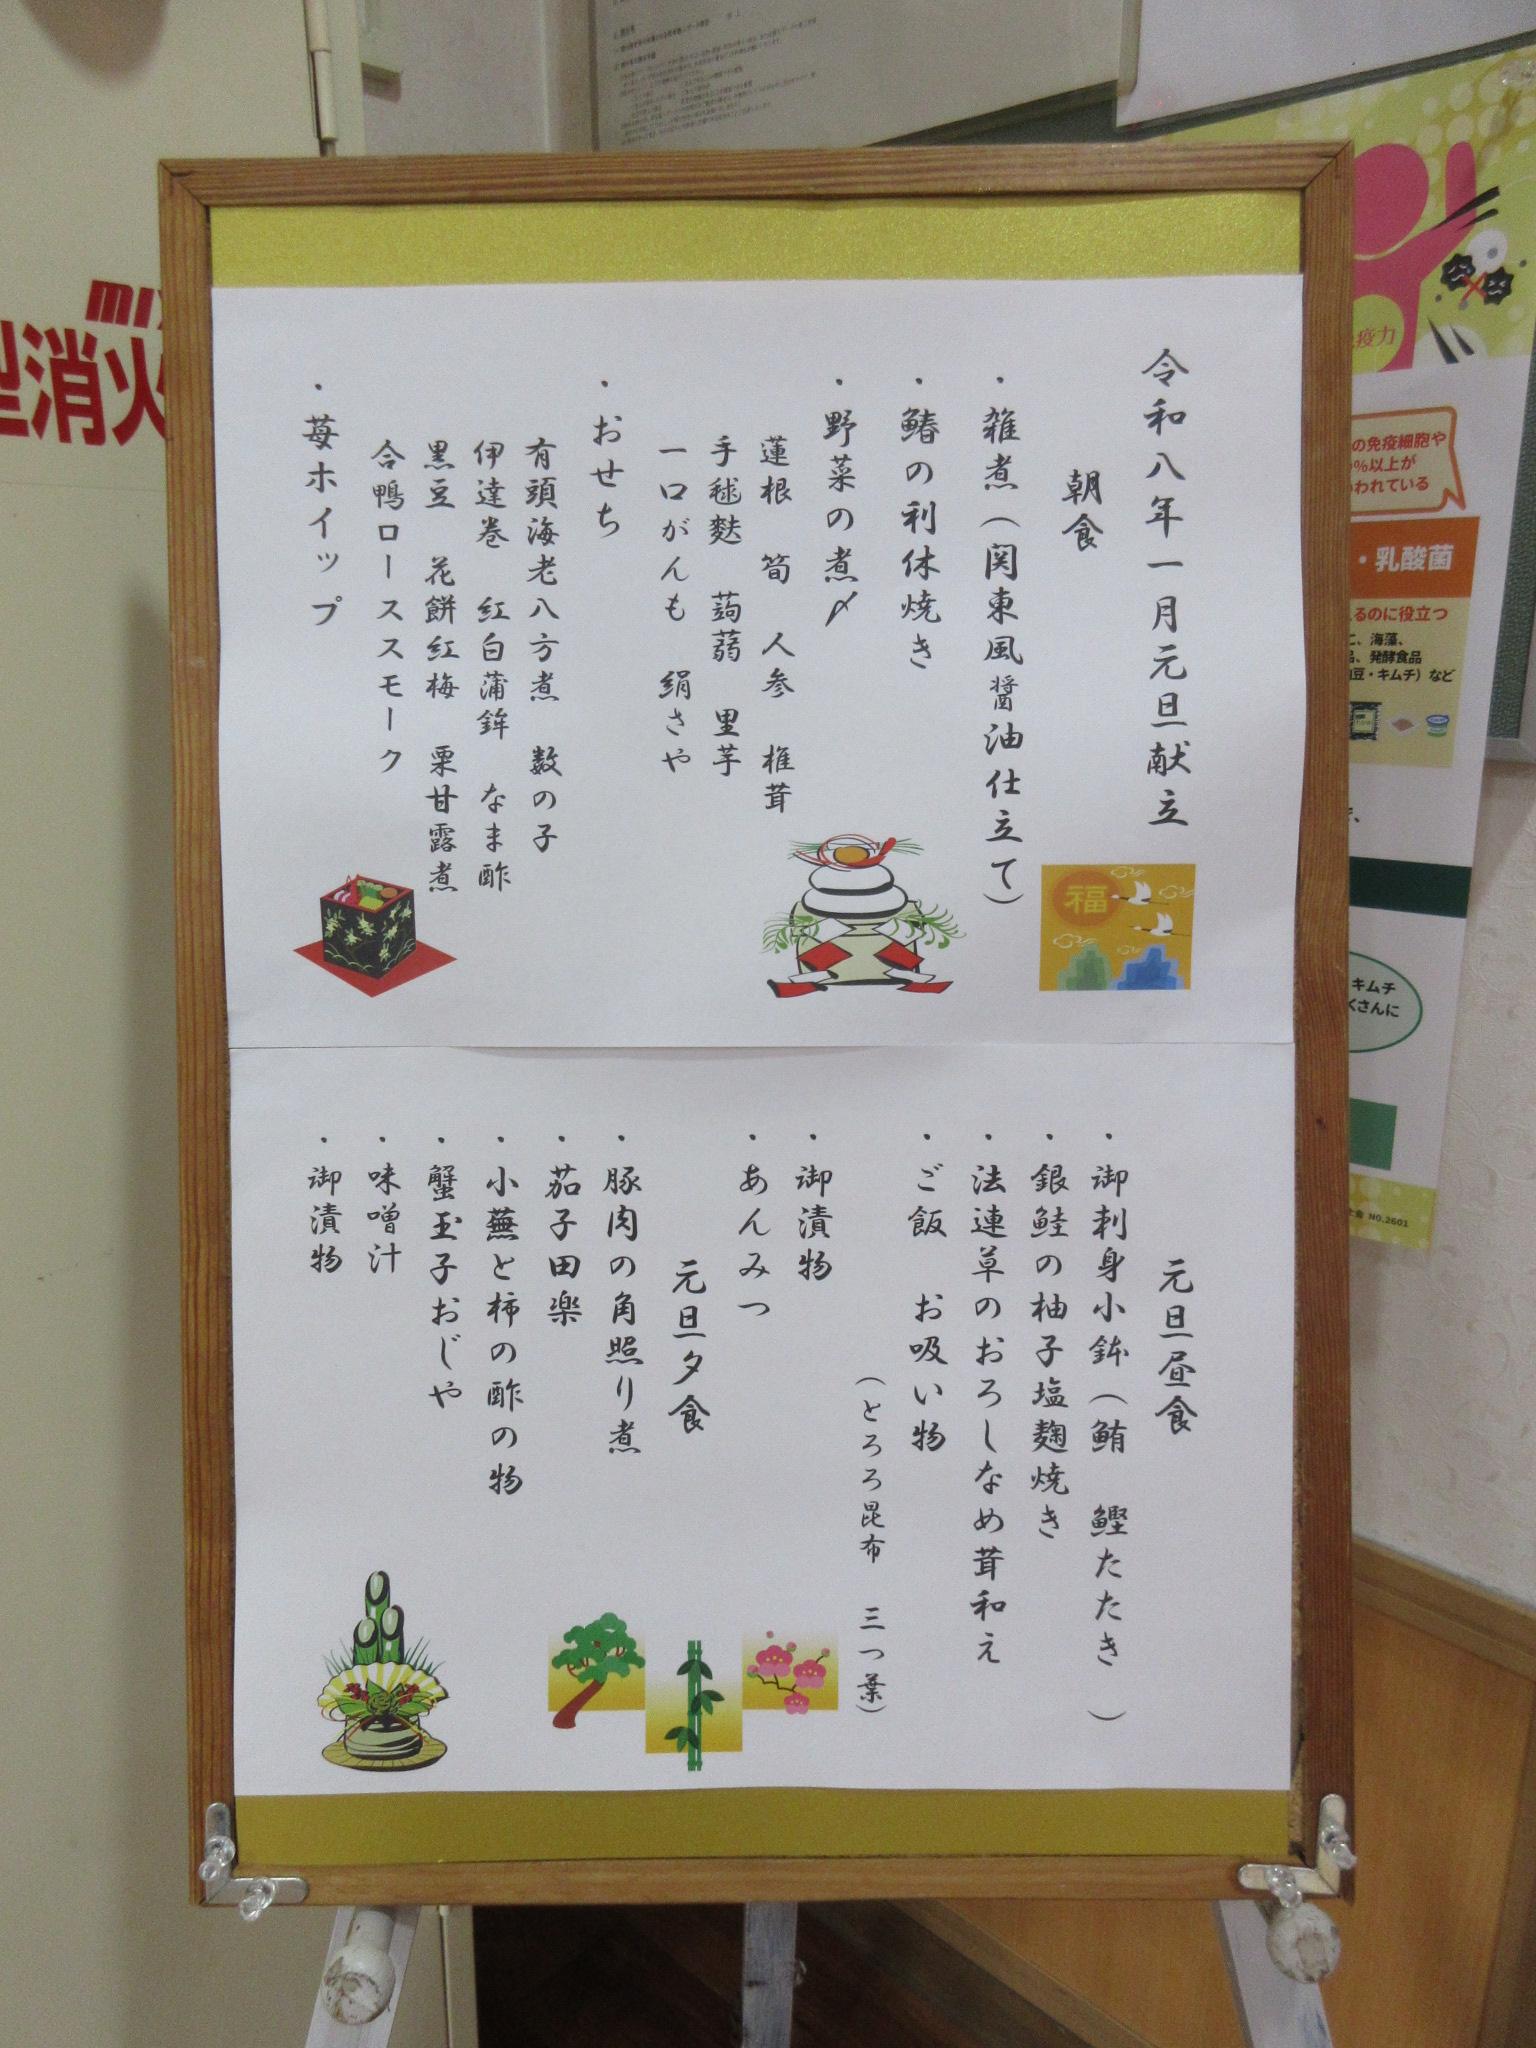 令和八年一月元旦献立
朝食
・雑煮（関東風醤油仕立て）
・鰆の利休焼き
・野菜の煮〆
蓮根 筍 人参 椎茸
手毬麩 蒟蒻 里芋
一口がんも 絹さや
・おせち
有頭海老八方煮 数の子
伊達巻 紅白蒲鉾 なま酢
黒豆 花餅紅梅 栗甘露煮
合鴨ローススモーク
・苺ホイップ
福
元旦昼食
・御刺身小鉢（鮪 鰹たたき ）
・銀鮭の柚子塩麹焼き
・法連草のおろしなめ茸和え
・ご飯 お吸い物
（とろろ昆布 三つ葉）
・御漬物
・あんみつ
元旦夕食
・豚肉の角照り煮
・茄子田楽
・小蕪と柿の酢の物
・蟹玉子おじや
・味噌汁
・御漬物
型消火
疫力
の免疫細胞や
%以上が
われている
・乳酸菌
るのに役立つ
海藻、
発酵食品
豆・キムチ）など
キムチ
くさんに
NO.2601